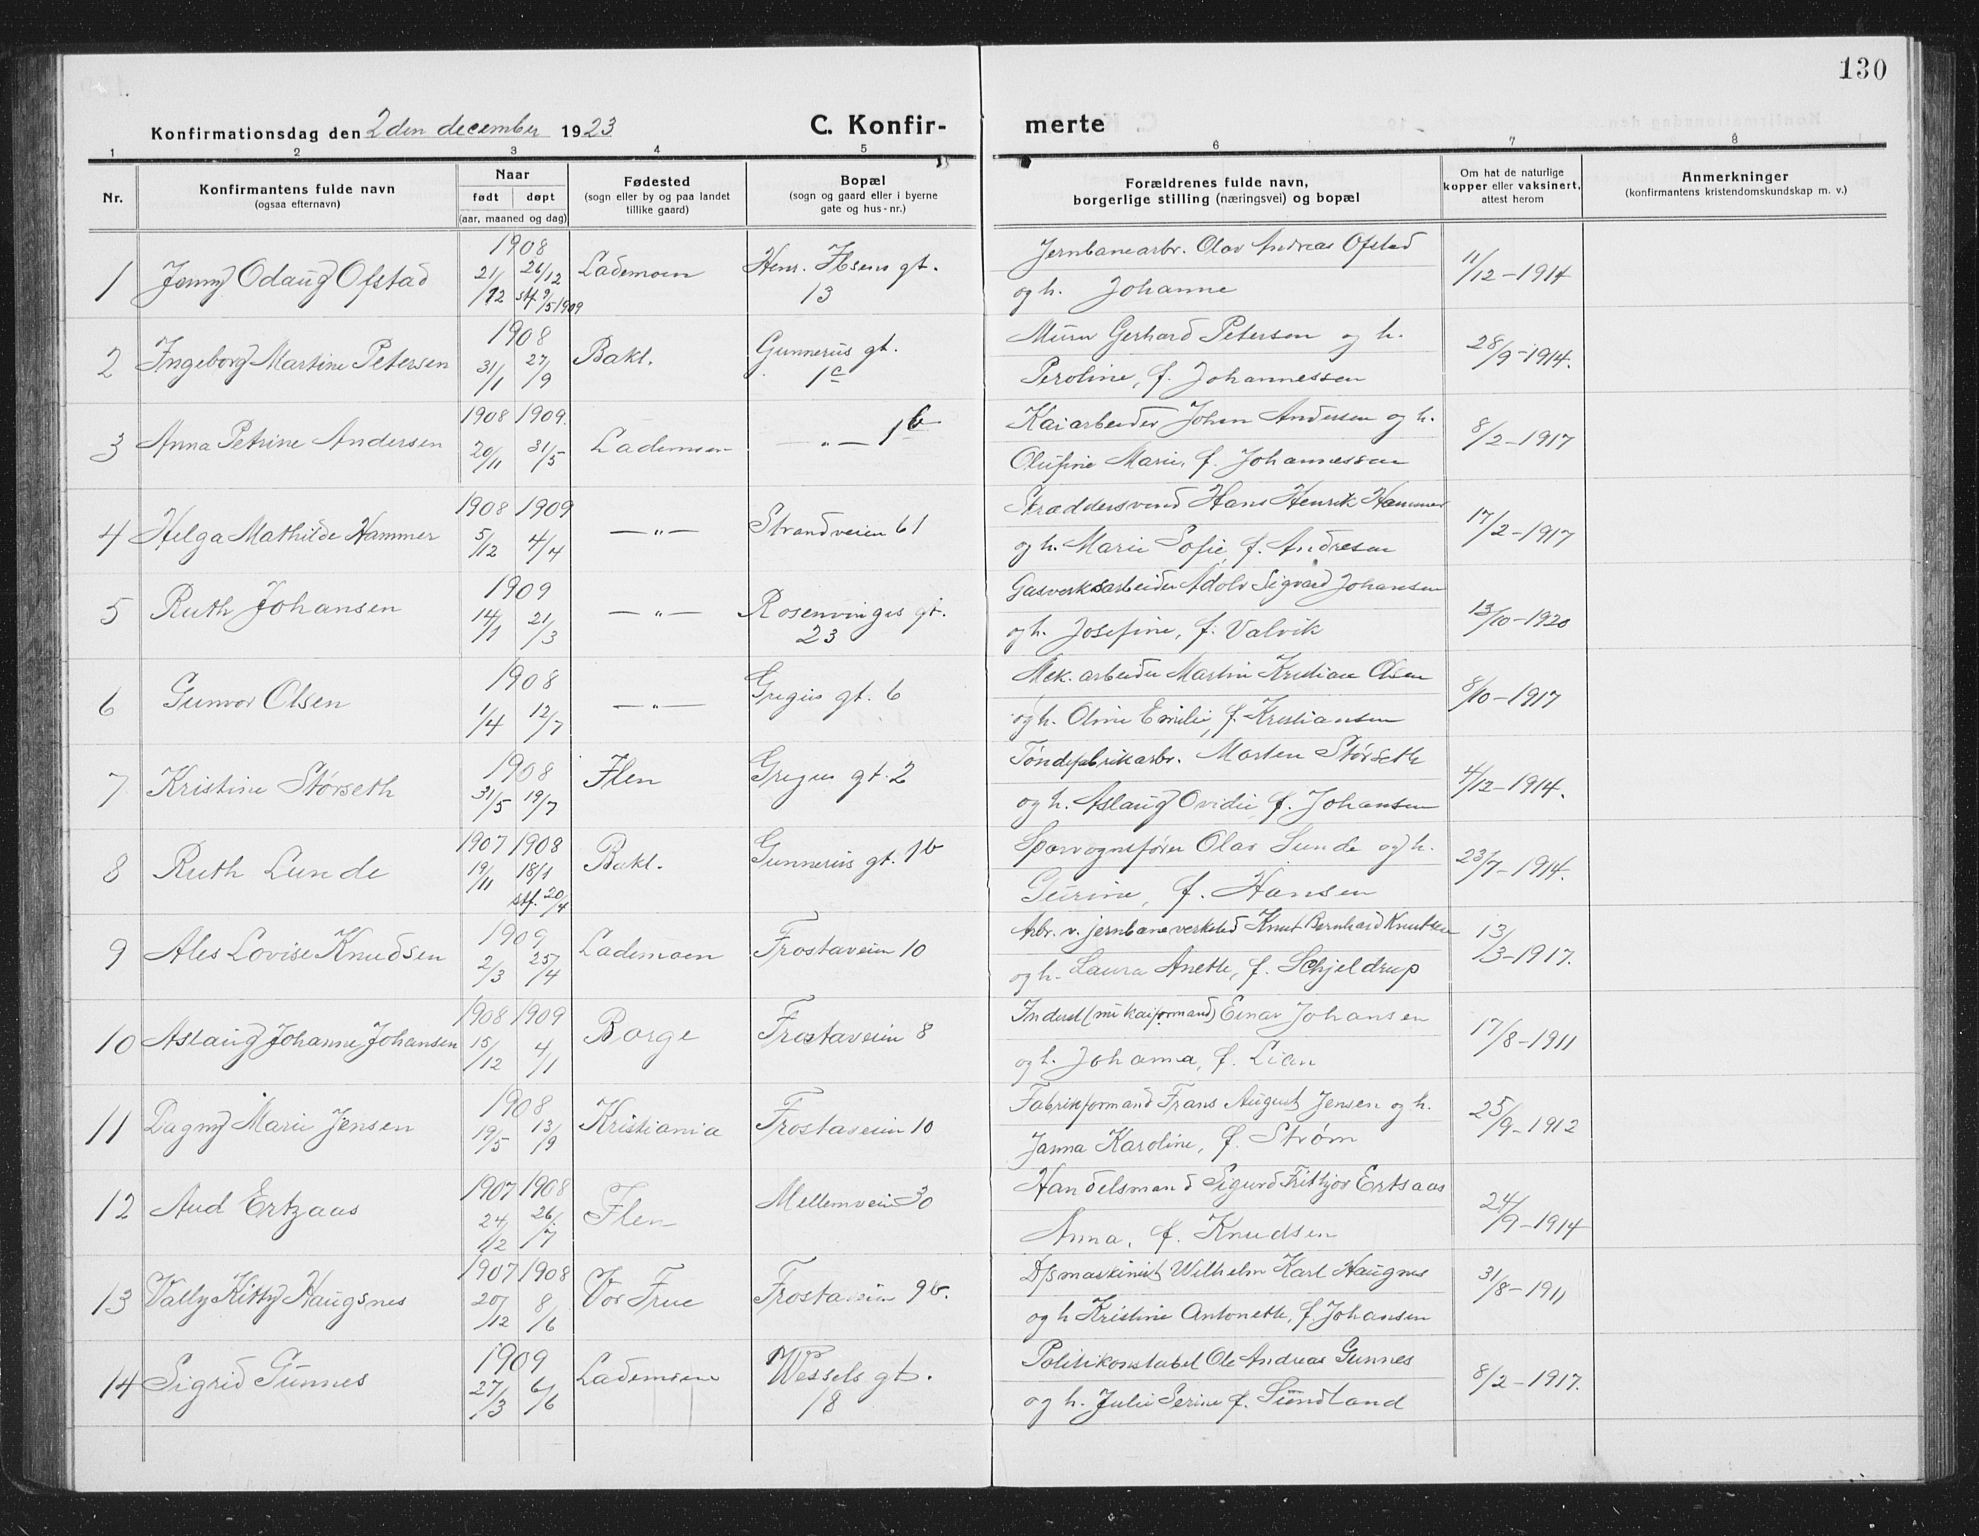 130
Konfirmationsdag den 2den december 1923
C. Konfir- merte
1 2 3 4 5 6 7 8
Nr. Konfirmantens fulde navn (ogsaa efternavn) Naar født døpt (aar, maaned og dag) Fødested (sogn eller by og paa landet tillike gaard) Bopæl (sogn og gaard eller i byerne gate og hus-nr.) Forældrenes fulde navn, borgerlige stilling (næringsvei) og bopæl Om hat de naturlige kopper eller vaksinert, attest herom Anmerkninger (konfirmantens kristendomskundskap m. v.)
1908 Jernbanearbr. Olav Andreas Ofstad
1 Jenny Odaug Ofstad 21/12 26/12 stf 9/5 1909 Lademoen Henr. Ibsens gt. 13 og h. Johanne 11/12-1914
1908 Murer Gerhard Petersen og h.
2 Ingeborg Martine Petersen 31/1 27/9 Bakl. Gunnerus gt. 1c Peroline, f. Johannessen 28/9-1914.
1908 1909. Kaiarbeider Johan Andersen og h.
3 Anna Petrine Andersen 20/11 31/5 Lademoen —„— 1b Olufine Marie, f. Johannessen 8/2-1917
1908 1909 Skræddersvend Hans Henrik Hammer
4 Helga Mathilde Hammer 5/12 4/4 —„— Strandveien 61 og h. Marie Sofie, f. Andresen 17/2-1917
1909 Gasverksarbeider Adolv Sigvard Johansen
5 Ruth Johansen 14/1 21/3 —„— Rosenvinges gt. 23 og h. Josefine, f. Valvik 13/10-1920
1908 Mek. arbeider Martin Kristian Olsen
6 Gunvor Olsen 1/4 12/7 —„— Gregus gt. 6 og h. Oline Emilie, f. Kristiansen 8/10-1917
1908 Tøndefabrikarbr. Morten Størseth
7 Kristine Størseth 31/5 19/7 Ilen Gregus gt. 2 og h. Aslaug Ovidie, f. Johansen 4/12-1914.
1907 1908 Sporvognsfører Olav Lunde og h.
8 Ruth Lunde 19/11 18/1 stf. 20/4 Bakl. Gunnerus gt. 1b Gurine, f. Hansen 23/7-1914.
1909 Arbr. v. jernbaneverksted Knut Bernhard Knutsen
9 Ales Lovise Knudsen 2/3 25/4 Lademoen Frostaveien 10 og h. Laura Anette, f. Schjeldrup 13/3-1917.
1908 1909 Einar Johansen
10 Aslaug Johanne Johansen 15/12 4/1 Borge Frostaveien 8 og h. Johanna, f. Lian 17/8-1911
1908 Fabrikformand Frans August Jensen og h.
11 Dagny Marie Jensen 19/5 13/9 Kristiania Frostaveien 10 Janna Karoline, f. Strøm 25/9-1912
1907 1908 Handelsmand Sigurd Fritjov Ertsaas
12 Aud Ertzaas 24/12 26/7 Ilen Mellemveien 30 Anna, f. Knudsen 24/9-1914
1907 1908 D/s maskinist Wilhelm Karl Haugnes
13 Vally Kitty Haugsnes 20/12 8/6 Vor Frue Frostaveien 9b. og h Kristine Antonette, f. Johansen 31/8-1911
1909 Politikonstabel Ole Andreas Gunnes
14 Sigrid Gunnes 27/3 6/6 Lademoen Wessels gt. 18 og h. Julie Serine f. Sundland 8/2-1917.